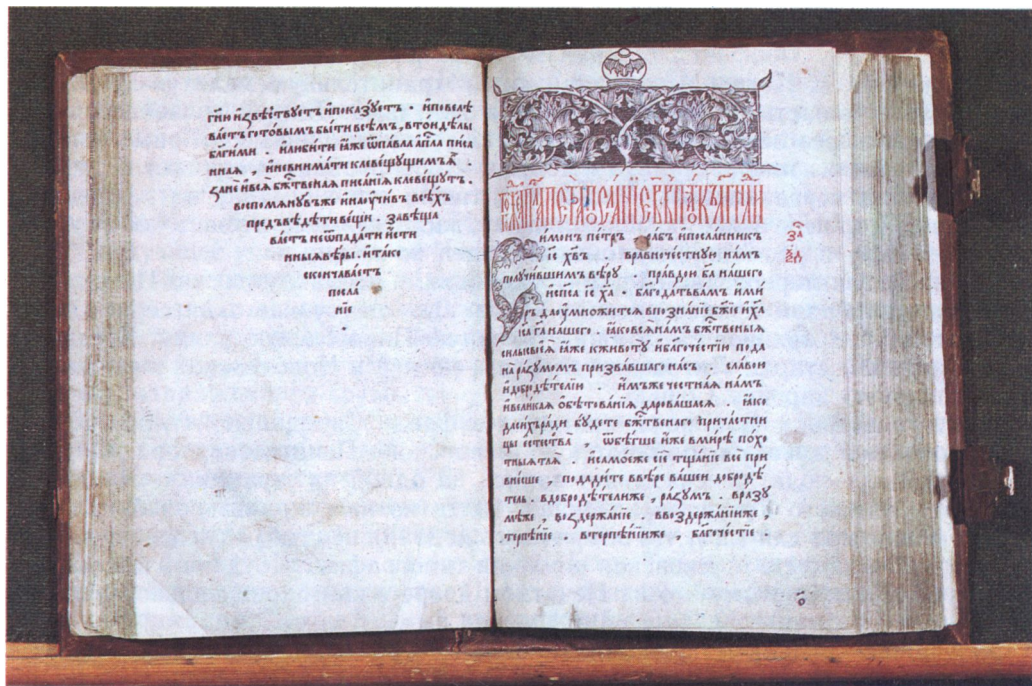 гїю и҆звѣ́ствуетъ и҆показꙋ́етъ · и҆повелѣ
ва́етъ гото́вымъ бы́ти всѣ́мъ, в то́и дѣлы
блги́ми . и҆люби́ти ꙗ҆́же ѿпа́вла а҆пⷭ҇ла писа
нная , и҆невнима́ти клеве́щꙋщимъ ꙗ҆̀ .
занѐ и҆всѧ̀ бж҃твеная писа́нїꙗ клеве́щꙋтъ .
воспомянꙋ́въ же и҆наꙋчи́въ всѣ́хъ
предъвѣ́дѣти ве́щи . завѣща
ва́етъ неѿпада́ти и҆́сти
нныѧ вѣ́ры . и҆та́ко
сконча́ваетъ
посла́
нїе
.
и҆́монъ пе́тръ ра́бъ и҆посла́нникъ
і҆с хв҃ъ вра́вночестнꙋю на́мъ
полꙋчи́вшимъ вѣ́рꙋ . пра́вдою ба҃ на́шего
и҆сп҃са і҆с ха҃ . благода́ть ва́мъ и҆ми
ръ даꙋмно́жится впозна́нїе бж҃їе и҆ха҃
і҆са га҃ на́шего . ꙗ҆́ко всѧ̀ на́мъ бж҃твеныѧ
си́лы своеѧ̀ ꙗ҆́же кживотꙋ̀ и҆благоче́стїю пода
на̀ ра́зꙋмомъ призва́вшаго на́съ . сла́вою
и҆добродѣ́телїю . и҆́мъже че́стнаꙗ на́мъ
и҆вели́каꙗ ѻ҆бѣтова́нїꙗ дарова́шасѧ . ꙗ҆́ко
да си́хъ ра́ди бꙋ́дете бж҃твенаго прича́стни
цы е҆стества̀ , ѿбѣ́гше и҆́же вми́рѣ по́хо
тныѧ тлѧ̀ . и҆са́мое же сїѐ тща́нїе всѐ при
не́сше , подади́те ввѣ́ре ва́шеи добродѣ́
тель . вдобродѣ́телиже , ра́зꙋмъ . вра́зꙋ
мѣже , воздержа́нїе . ввоздержа́нїиже ,
терпѣ́нїе . втерпѣ́нїиже , благоче́стїе
за҃
ѯ҃д
о҃